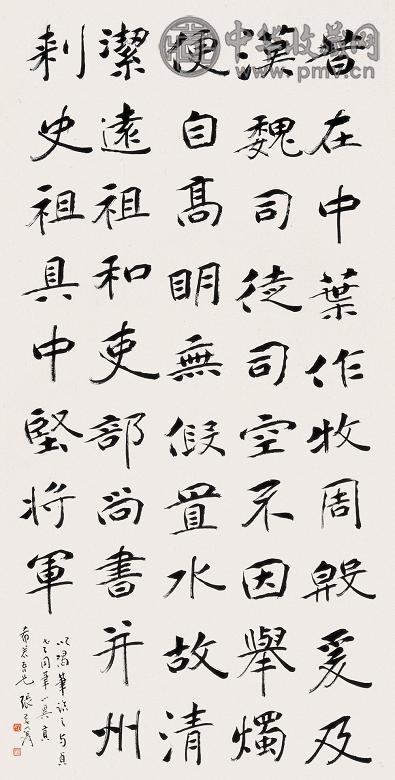 中华收藏网
www.pmv.cn
昔在中葉作牧周殷爰及
漢魏司徒司空不因舉燭
便自高明無假置水故清
潔遠祖和吏部尚書并州
刺史祖具中堅將軍
以渴筆
張